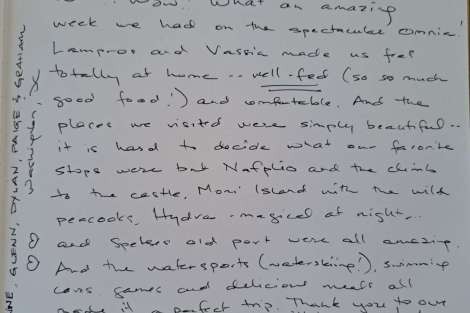 Wow.. What an amazing
week we had on the spectacular Omnia!
Lampros and Vassia made us feel
totally at home .. well-fed (so so much
good food!) and comfortable. And the
places we visited were simply beautiful..
it is hard to decide what our favorite
stops were but Nafplio and the climb
to the castle, Moni Island with the wild
peacocks, Hydra - magical at night,..
and Spetses old port were all amazing.
And the watersports (waterskiing!), swimming
games and delicious meals all
made it a perfect trip. Thank you to our
GLENN, DYLAN, PAIGE & GRAHAM
Washington